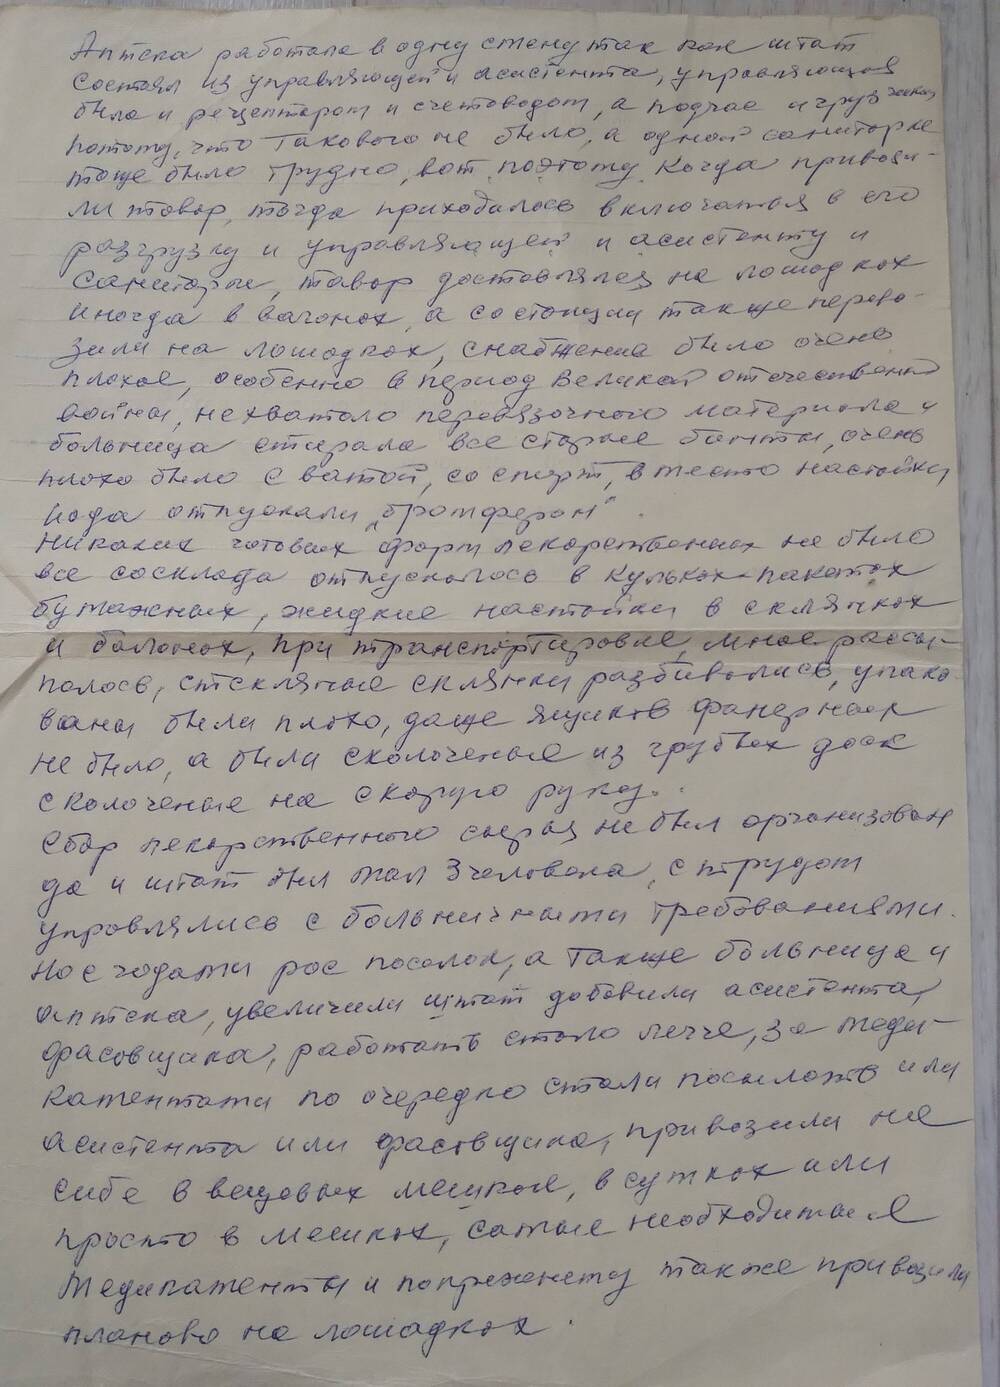 Аптека работала в одну смену так как штат
состоял из управляющей и асистента, управляющая
была и рецептаром и счетоводом, а подчас и грузчиком
потому, что такового не было, а одной санитарке
тоже было трудно, вот поэтому когда привози-
ли товар, тогда приходилось включаться в его
разгрузку и управляющей и асистенту и
санитарке, товар доставлялся на лошадках
иногда в вагонах, а со станции также перево-
зили на лошадках, снабжение было очень
плохое, особенно в период Великой отечественной
войны, не хватало перевязочного материала и
больница стирала все старые бинты, очень
плохо было с ватой, со спирт, в место настойки
иода отпускали "бромферон".
Никаких готовых форм лекарственных не было
все со склада отпускалось в кульках-пакетах
бумажных, жидкие настойки в склянках
и балонах, при транспортировке, многое рассы-
палось, стеклянные склянки разбивались, упако-
ваны были плохо, даже ящиков фанерных
не было, а были сколоченые из грубых досок
сколоченые на скорую руку.
Сбор лекарственного сырья не был организован
да и штат был мал 3 человека, с трудом
управлялись с больничными требованиями.
Но с годами рос поселок, а также больница и
аптека, увеличили штат добавили асистента,
фасовщика, работать стало легче, за меди-
каментами по очередно стали посылать или
асистента или фасовщика, привозили на
себе в вещовых мешках, в сумках или
просто в мешках, самые необходимые
медикаменты и попрежнему также привозили
планово на лошадках.